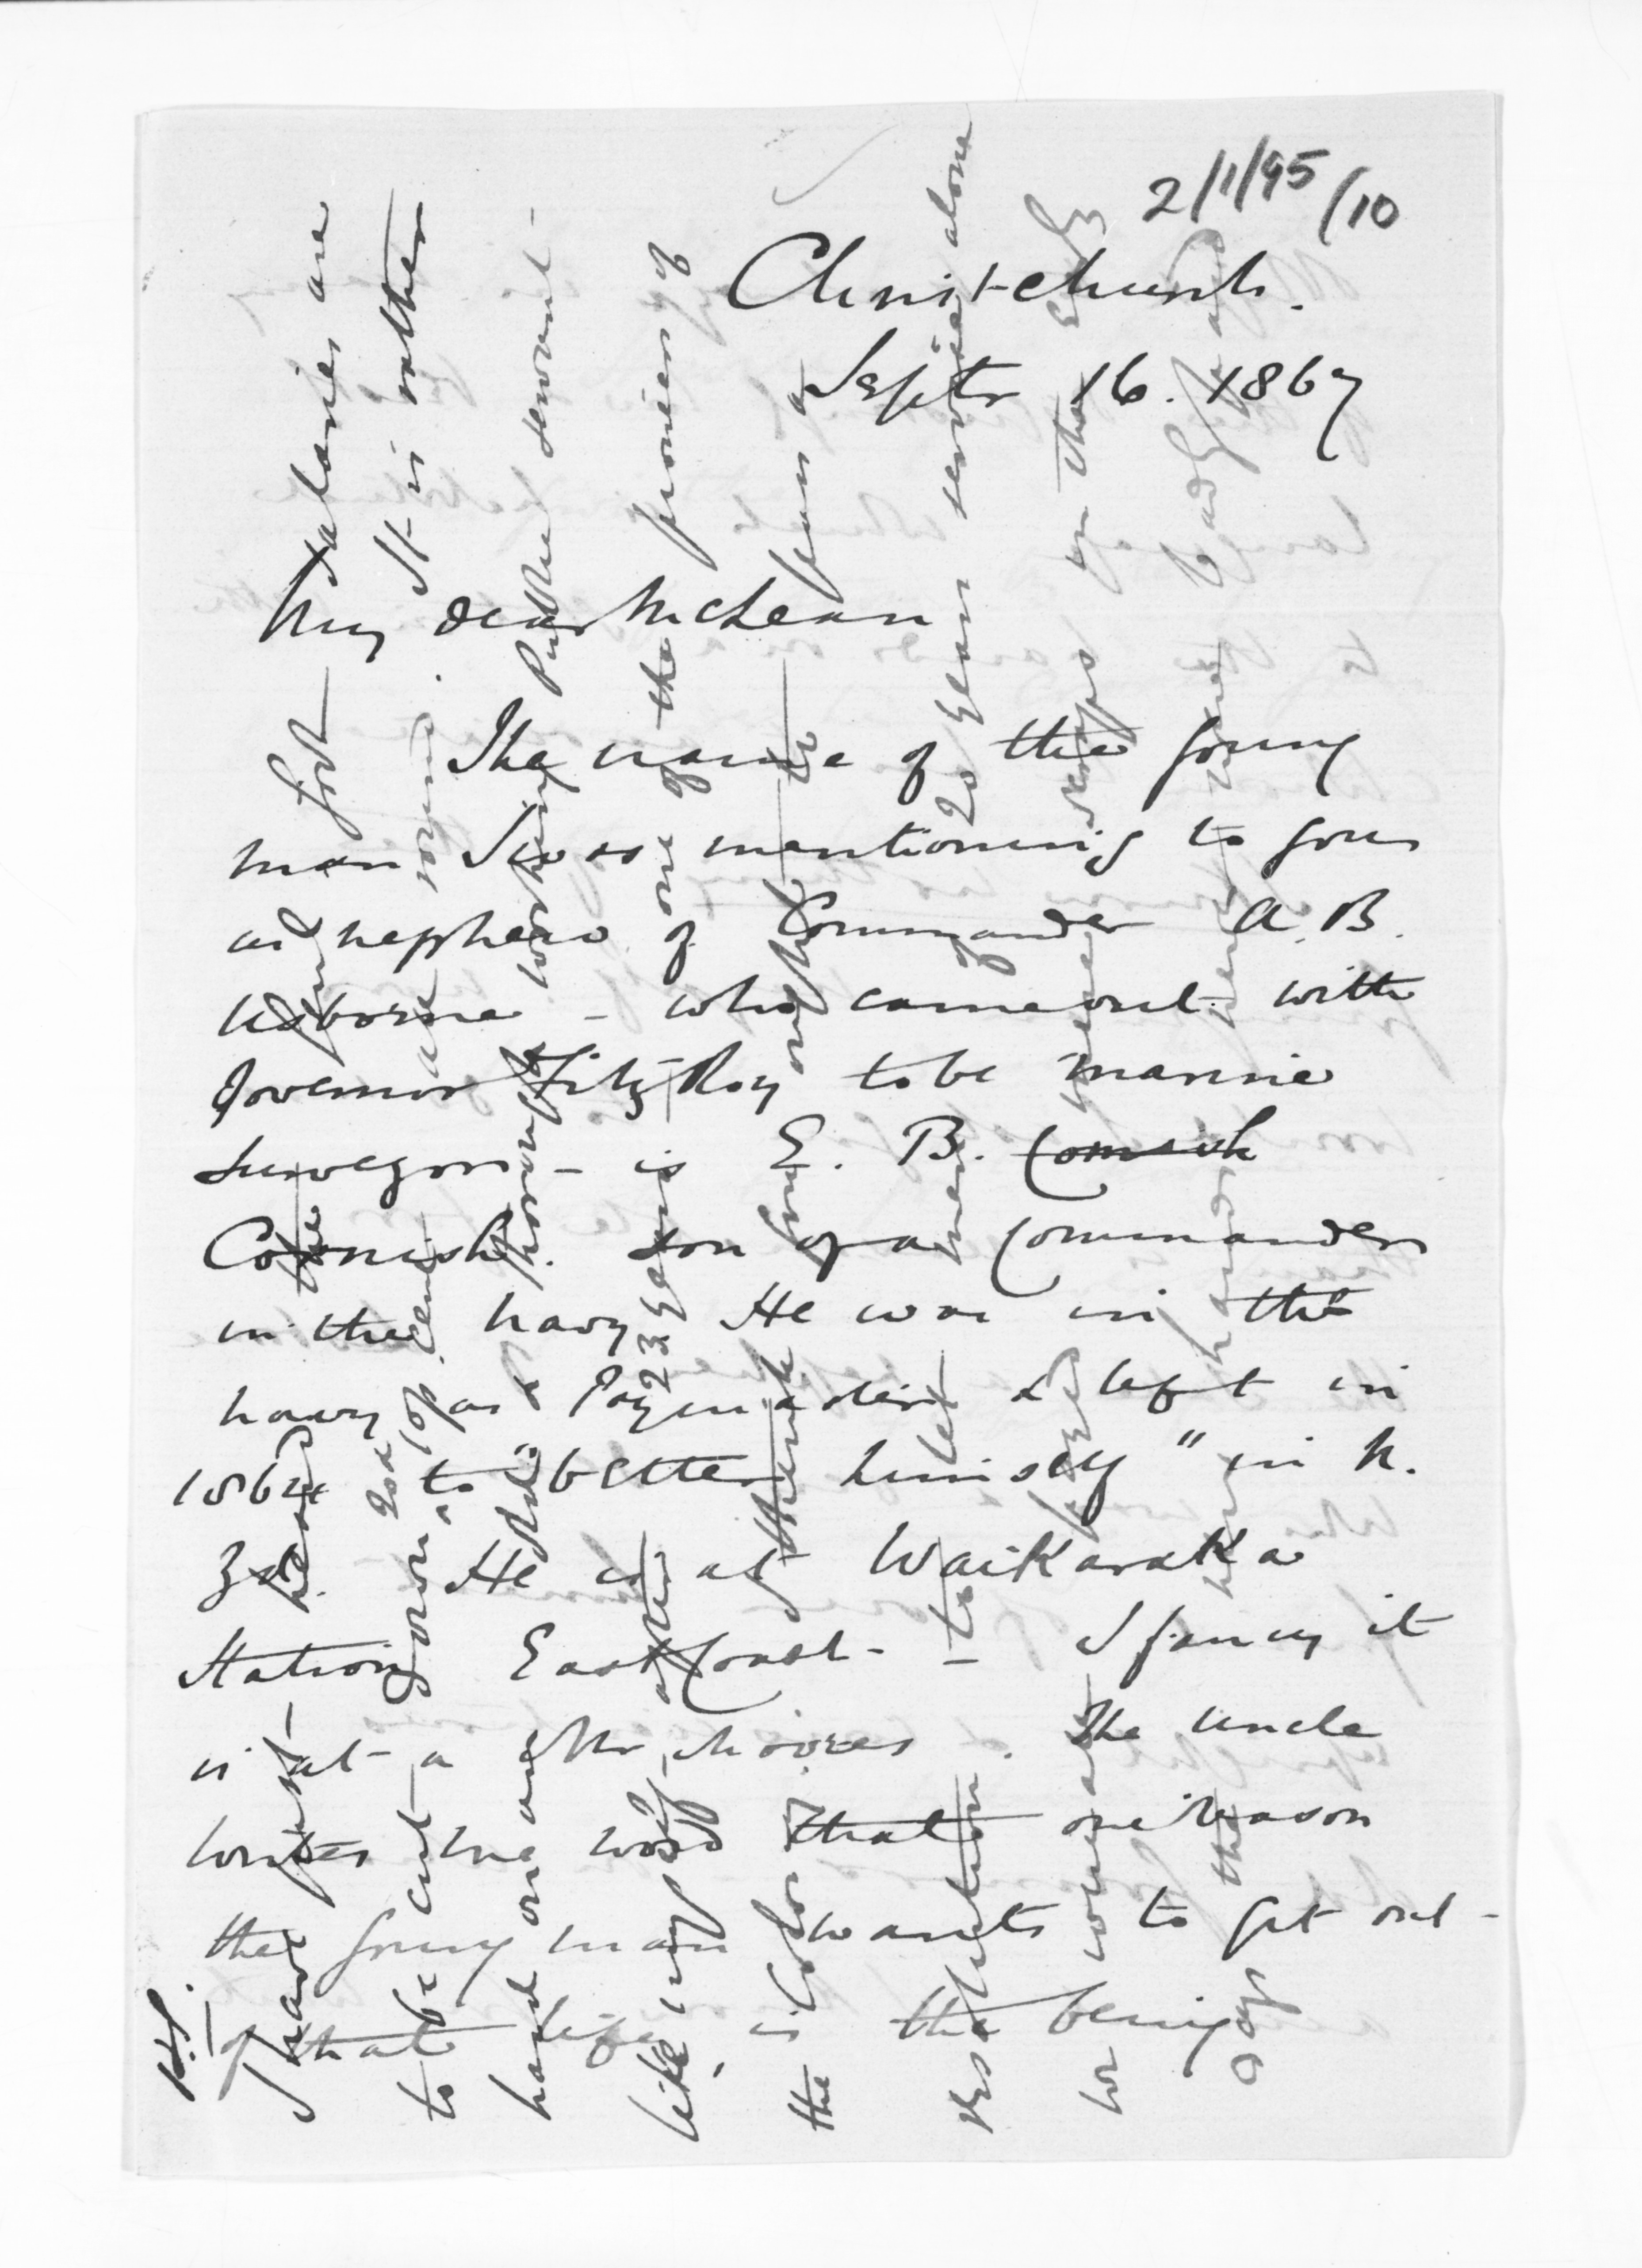 2/1/95/10
Christchurch.
Septr 16. 1867
My dear McLean
The name of the young
man I was mentioning to you
as nephew of Commander A. B.
Usborne - who came out with
Governor FitzRoy to be marine
Surveyor - is E. B. Cornish
Cornish. son of a Commander
in the navy. He was in the
navy as Paymaster & left in
1864 "to better himself" in N.
Zd. He is at Waikaraka
Station East Coast - - I fancy it
is at a Mr Moores. The uncle
writes me word that one reason
the young man wants to get out
of that life, is the being
P.S.
I have just heard the first salaries are
to be cut down 20 per cent all round. It is rather
hard on an old & thorough working Public servant -
like myself, after 23 years - one of the pioneers of
the Colony. I think you ought to pass a
resolution to let men 20 years service alone